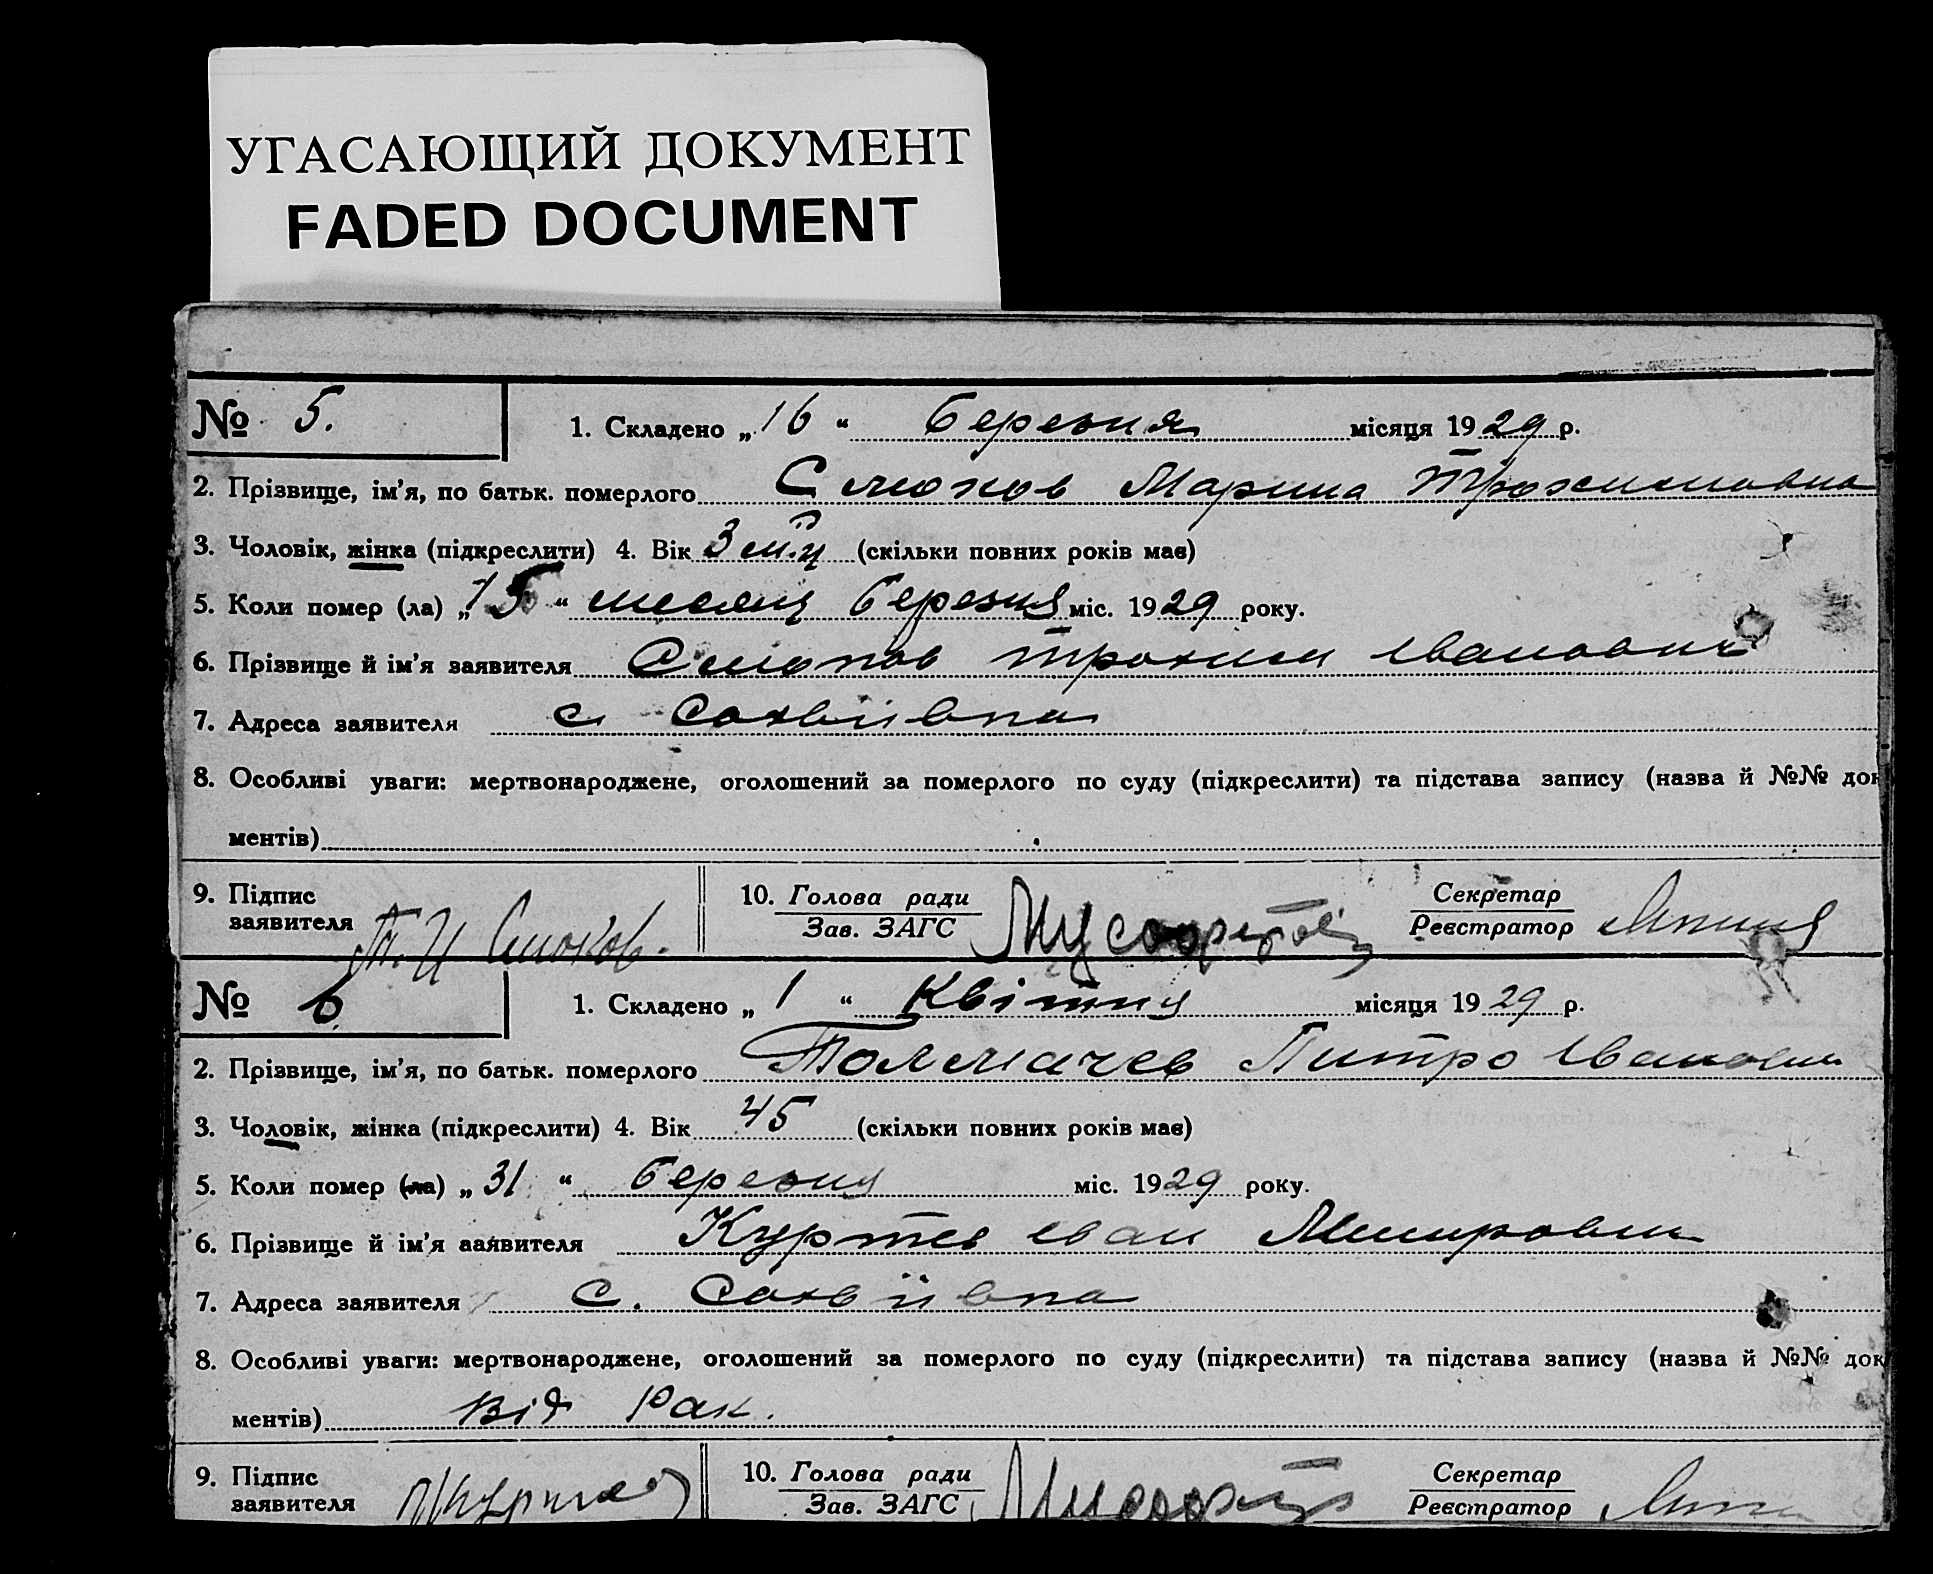 УГАСАЮЩИЙ ДОКУМЕНТ
FADED DOCUMENT
№ 5. 1. Складено „ 16 “ березня місяця 1929 р.
2. Прізвище, ім’я, по батьк. померлого Смоков Марина Трохимовна
3. Чоловік, жінка (підкреслити) 4. Вік 3 (скільки повних років має)
5. Коли помер (ла) „ 15 “ месяц березня міс. 1929 року.
6. Прізвище й ім’я заявителя Смоков Трохим Іванович
7. Адреса заявителя с. Сахвіівка
8. Особливі уваги: мертвонароджене, оголошений за померлого по суду (підкреслити) та підстава запису (назва й №№ док
ментів)
9. Підпис заявителя Т. И Смоков. 10. Голова ради Зав. ЗАГС Секретар Реєстратор
№ 6 1. Складено „ 1 “ Квітня місяця 1929 р.
2. Прізвище, ім’я, по батьк. померлого Толмачев Питро Іванович
3. Чоловік, жінка (підкреслити) 4. Вік 45 (скільки повних років має)
5. Коли помер (ла) „ 31 “ березня міс. 1929 року.
6. Прізвище й ім’я ааявителя Куртев Іван
7. Адреса заявителя с. Сахвіівка
8. Особливі уваги: мертвонароджене, оголошений за померлого по суду (підкреслити) та підстава запису (назва й №№ док
ментів) від Рак.
9. Підпис заявителя 10. Голова ради Зав. ЗАГС Секретар Реєстратор